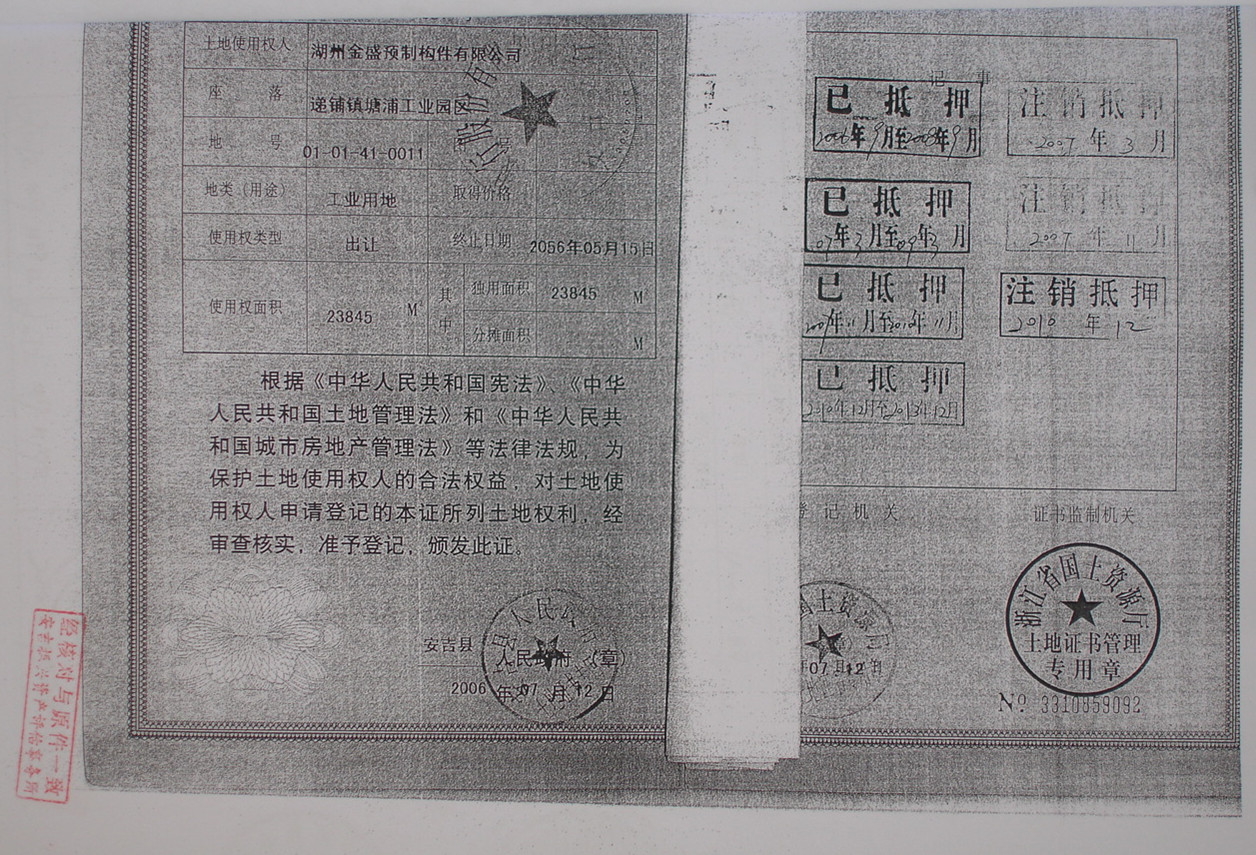 土地使用权人 湖州金盛预制构件有限公司
座 落 递铺镇塘浦工业园区
地 号 01-01-41-0011
地类（用途） 工业用地 取得价格
使用权类型 出让 终止日期 2056年05月15日
使用权面积 23845 M² 其中 独用面积 23845 M²
分摊面积 M²
根据《中华人民共和国宪法》、《中华
人民共和国土地管理法》和《中华人民共
和国城市房地产管理法》等法律法规，为
保护土地使用权人的合法权益，对土地使
用权人申请登记的本证所列土地权利，经
审查核实，准予登记，颁发此证。
安吉县 人民政府（章）
2006 年 07 月 12 日
记 事
已抵押
2006年9月至2008年9月
注销抵押
2007年3月
已抵押
07年3月至09年3月
注销抵押
2007年11月
已抵押
2007年11月至2010年11月
注销抵押
2010年12
已抵押
2010年12月至2013年12月
登记机关
国土资源局
年07月12日
证书监制机关
浙江省国土资源厅
土地证书管理
专用章
№ 3310859092
经核对与原件一致
安吉振兴资产评估事务所